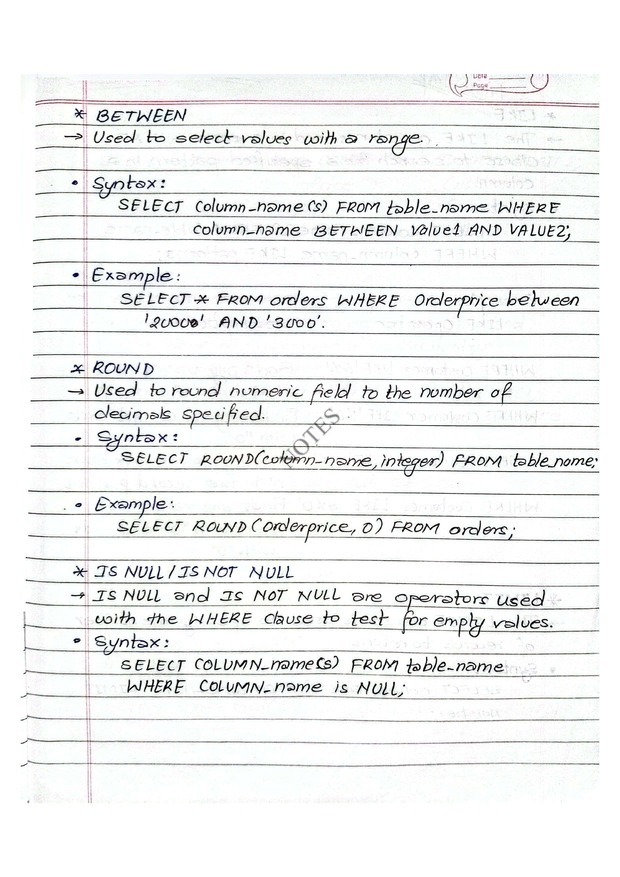 Date
Page
* BETWEEN
→ Used to select values with a range.
• Syntax:
SELECT column_name(s) FROM table_name WHERE
column_name BETWEEN value1 AND VALUE2;
• Example:
SELECT * FROM orders WHERE Orderprice between
'20000' AND '3000'.
* ROUND
→ Used to round numeric field to the number of
decimals specified.
• Syntax:
SELECT ROUND(column_name, integer) FROM table_name;
NOTES
• Example:
SELECT ROUND (Orderprice, 0) FROM orders;
* IS NULL / IS NOT NULL
→ IS NULL and IS NOT NULL are operators used
with the WHERE clause to test for empty values.
• Syntax:
SELECT COLUMN_name(s) FROM table_name
WHERE COLUMN_name is NULL;